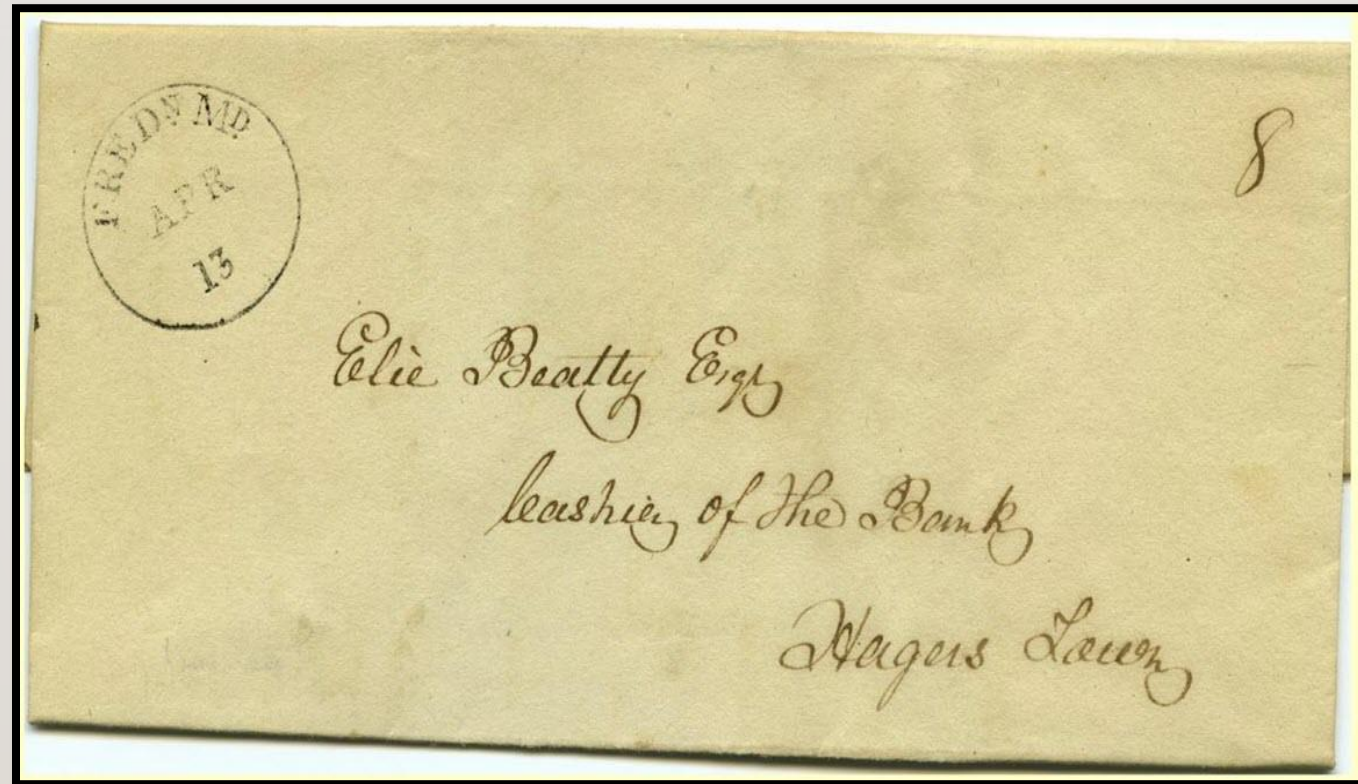 FREDK MD.
APR
13
8
Elie Beatty Esqr
Cashier of the Bank
Hagers Town